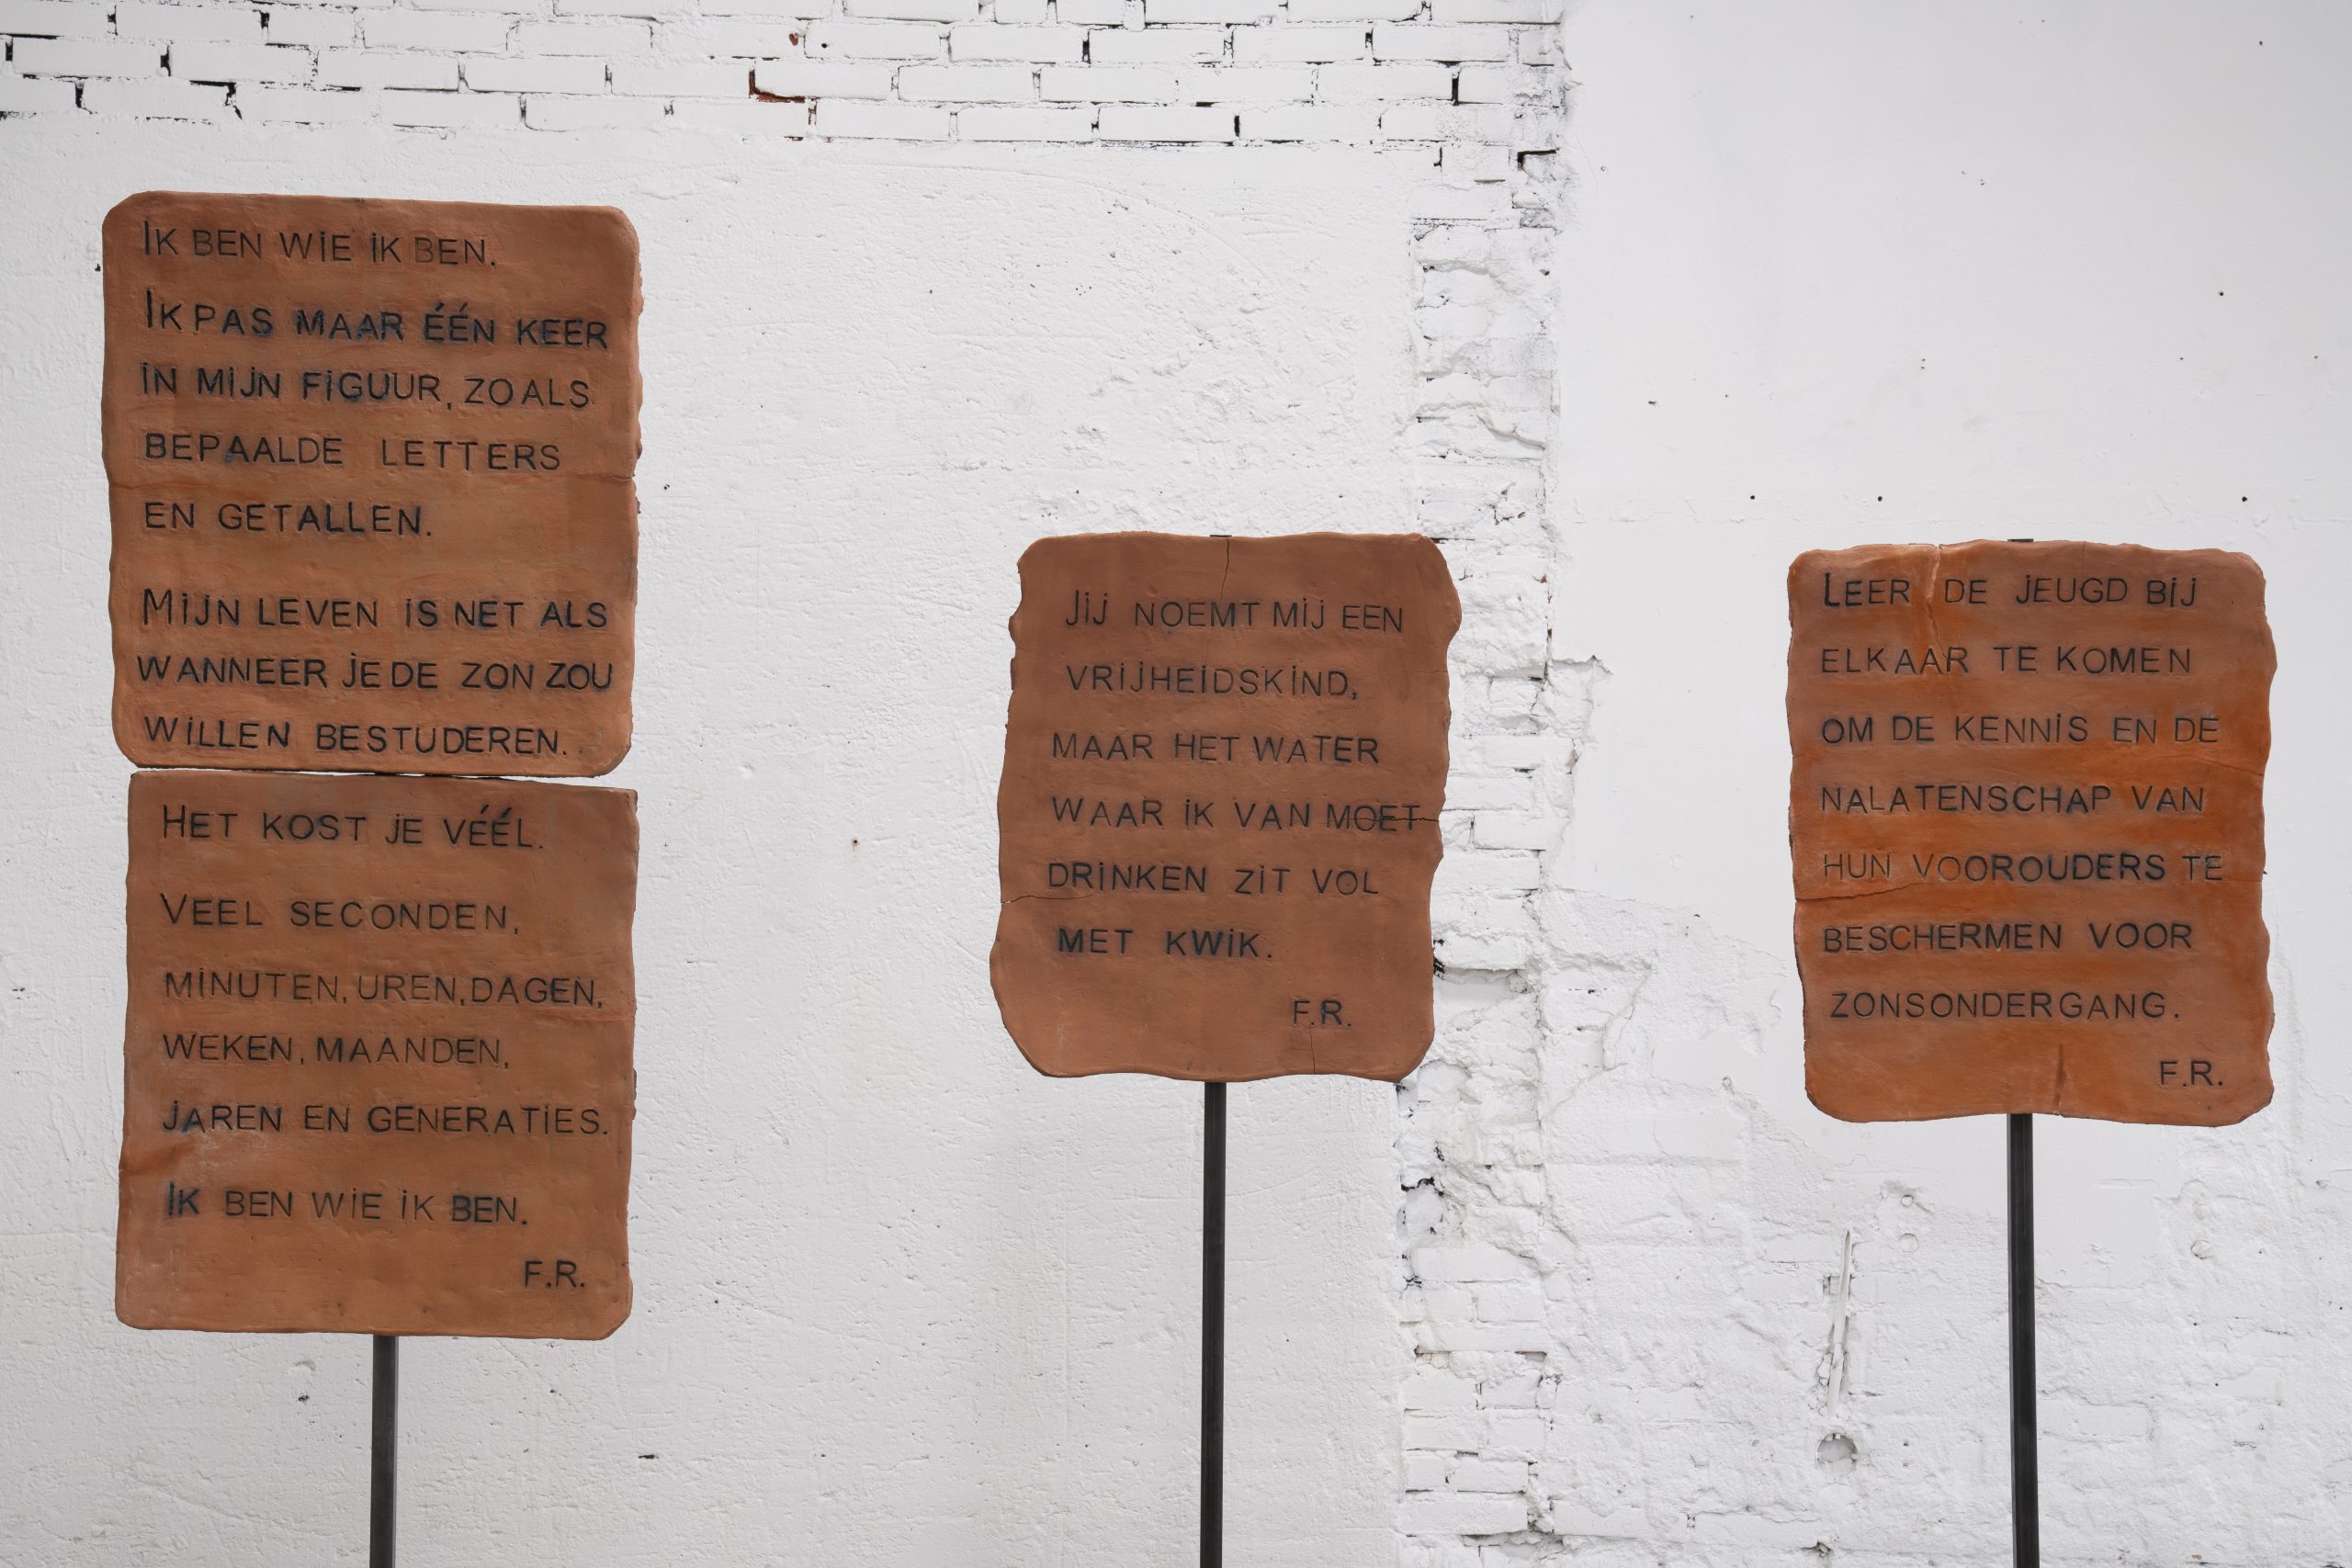 Ik ben wie ik ben.
Ik pas maar één keer
in mijn figuur, zoals
bepaalde letters
en getallen.
Mijn leven is net als
wanneer je de zon zou
willen bestuderen.
Het kost je véél.
Veel seconden,
minuten, uren, dagen,
weken, maanden,
jaren en generaties.
Ik ben wie ik ben.
F.R.
Jij noemt mij een
vrijheidskind,
maar het water
waar ik van moet
drinken zit vol
met kwik.
F.R.
Leer de jeugd bij
elkaar te komen
om de kennis en de
nalatenschap van
hun voorouders te
beschermen voor
zonsondergang.
F.R.